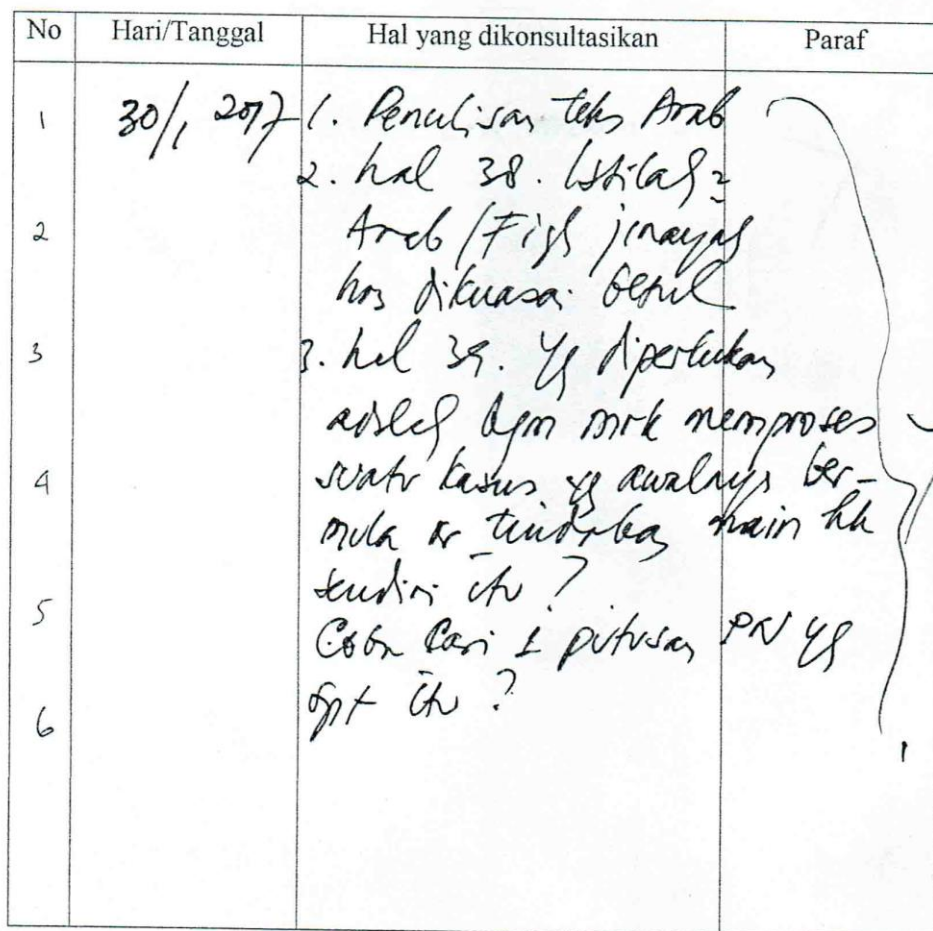 No Hari/Tanggal Hal yang dikonsultasikan Paraf
1 30/1 2017 1. Penulisan teks Arab
2. hal 38. Istilah2
2 Arab/Fiqh jinayah
hrs dikuasai betul
3 3. hal 39. yg diperlukan
adalah bgm mrk memproses
4 suatu kasus yg awalnya ber-
mula dr tindakan main hk
sendiri itu?
5 Coba cari 1 putusan PN yg
spt itu?
6